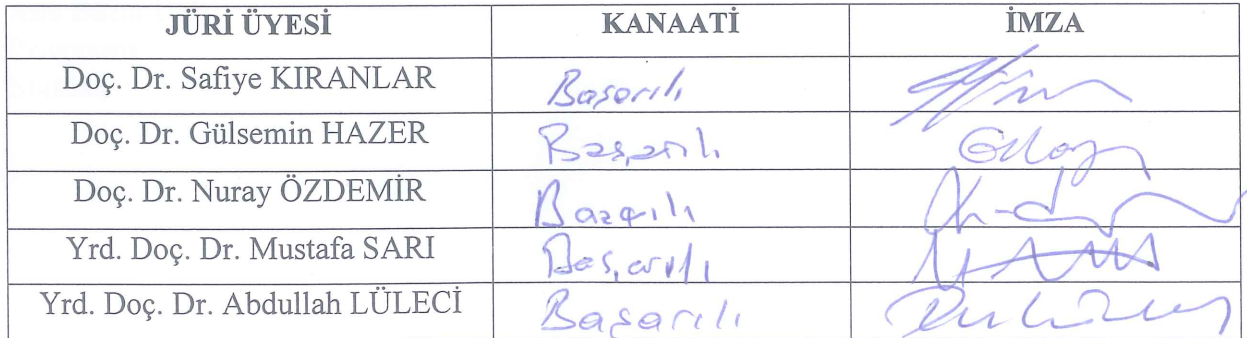 JÜRİ ÜYESİ KANAATİ İMZA
Doç. Dr. Safiye KIRANLAR Başarılı
Doç. Dr. Gülsemin HAZER Başarılı
Doç. Dr. Nuray ÖZDEMİR Başarılı
Yrd. Doç. Dr. Mustafa SARI Başarılı
Yrd. Doç. Dr. Abdullah LÜLECİ Başarılı